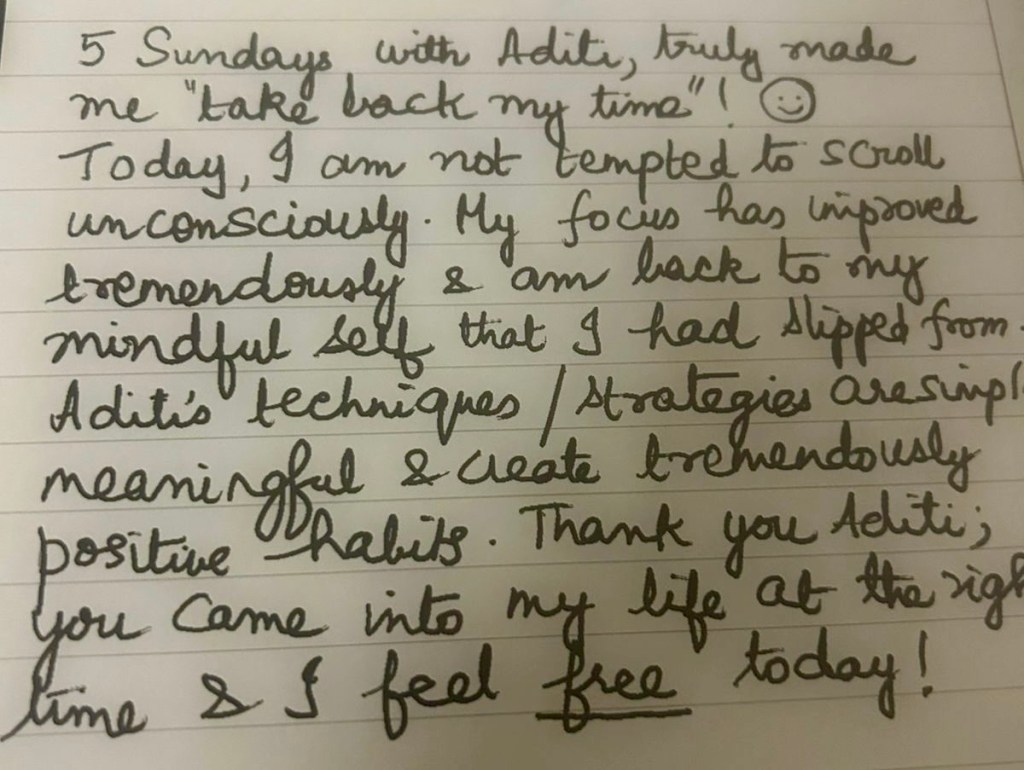 5 Sundays with Aditi, truly made
me "take back my time"! ☺
Today, I am not tempted to scroll
unconsciously. My focus has improved
tremendously & am back to my
mindful self that I had slipped from.
Aditi's techniques / strategies are simpl
meaningful & create tremendously
positive habits. Thank you Aditi;
you came into my life at the righ
time & I feel free today!